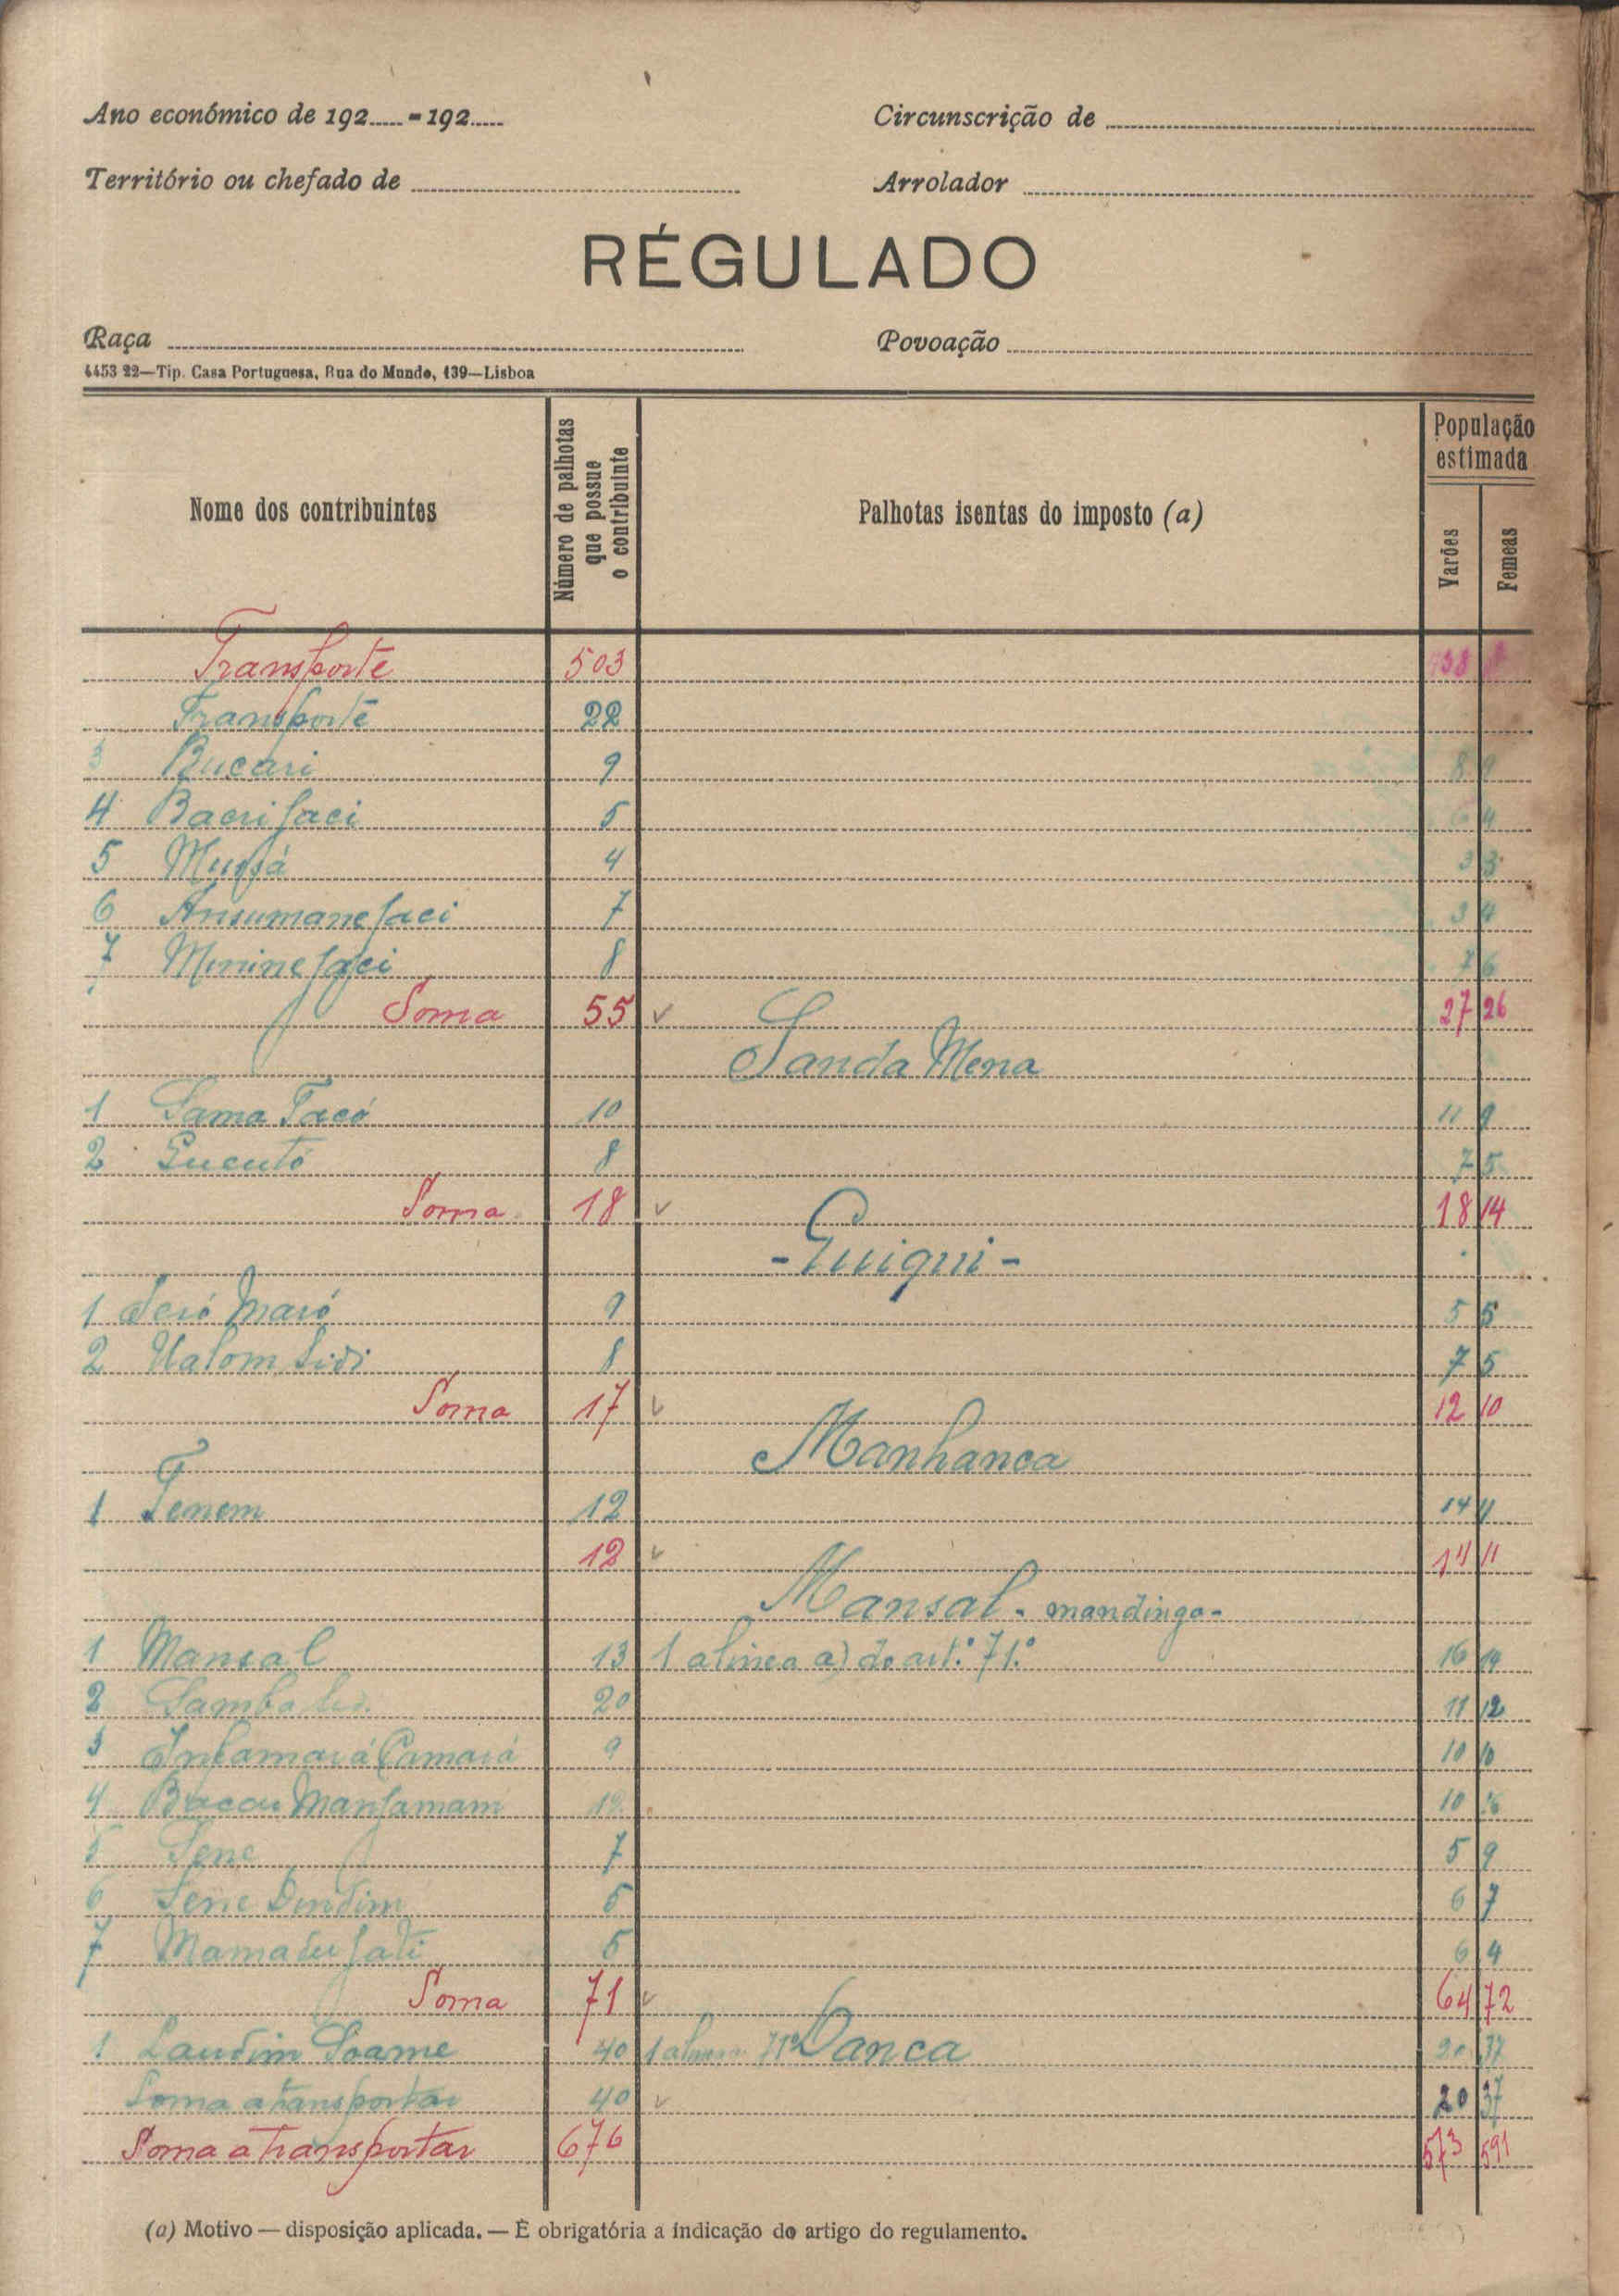 Ano económico de 192..... - 192.....
Circunscrição de
Território ou chefado de
Arrolador
RÉGULADO
Raça
Povoação
4453 22—Tip. Casa Portuguesa, Rua do Mundo, 139—Lisboa
Nome dos contribuintes
Número de palhotas que possue o contribuinte
Palhotas isentas do imposto (a)
População estimada
Varões
Femeas
Transporte 503
Transporte 22
3 Bucari 9 8 9
4 Bacri Saci 5 4
5 Mussá 4 3 3
6 Ansumane Saci 7 3 4
7 Minine Saci 8 7 6
Soma 55 27 26
Sanda Mena
1 Sama Tacó 10 11 9
2 Sucutó 8 7 5
Soma 18 18 14
- Guiqui -
1 Seió Maió 9 5 5
2 Ualom Sidi 8 7 5
Soma 17 12 10
Manhanca
1 Tenem 12 14 11
12 14 11
Mansal - mandinga -
1 Mansal 13 1 alinea a) do art.º 71.º 16 14
2 Samba 20 11 12
3 Infamará Camará 9 10 10
4 Bacou Mansamam 12 10 16
5 Sene 7 5 9
6 Sene Dindim 5 6 7
7 Mamadu Sati 5 6 4
Soma 71 64 72
1 Laudim Soame 40 1 71º Danca 20 37
Soma a transportar 40 20 37
Soma a transportar 676 573 591
(a) Motivo — disposição aplicada. — É obrigatória a indicação do artigo do regulamento.